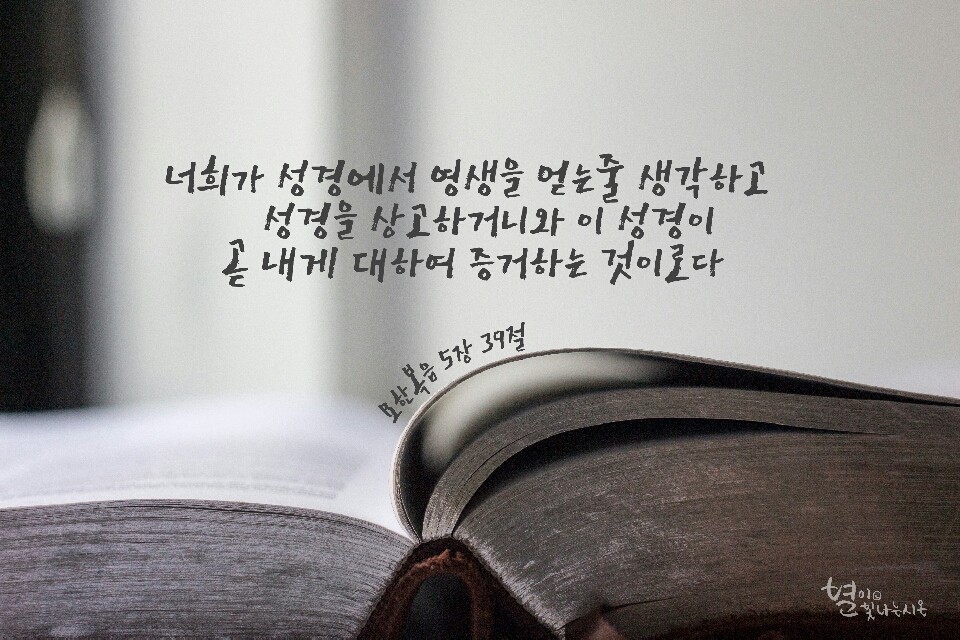 너희가 성경에서 영생을 얻는줄 생각하고
성경을 상고하거니와 이 성경이
곧 내게 대하여 증거하는 것이로다
요한복음 5장 39절
별이
빛나는시온